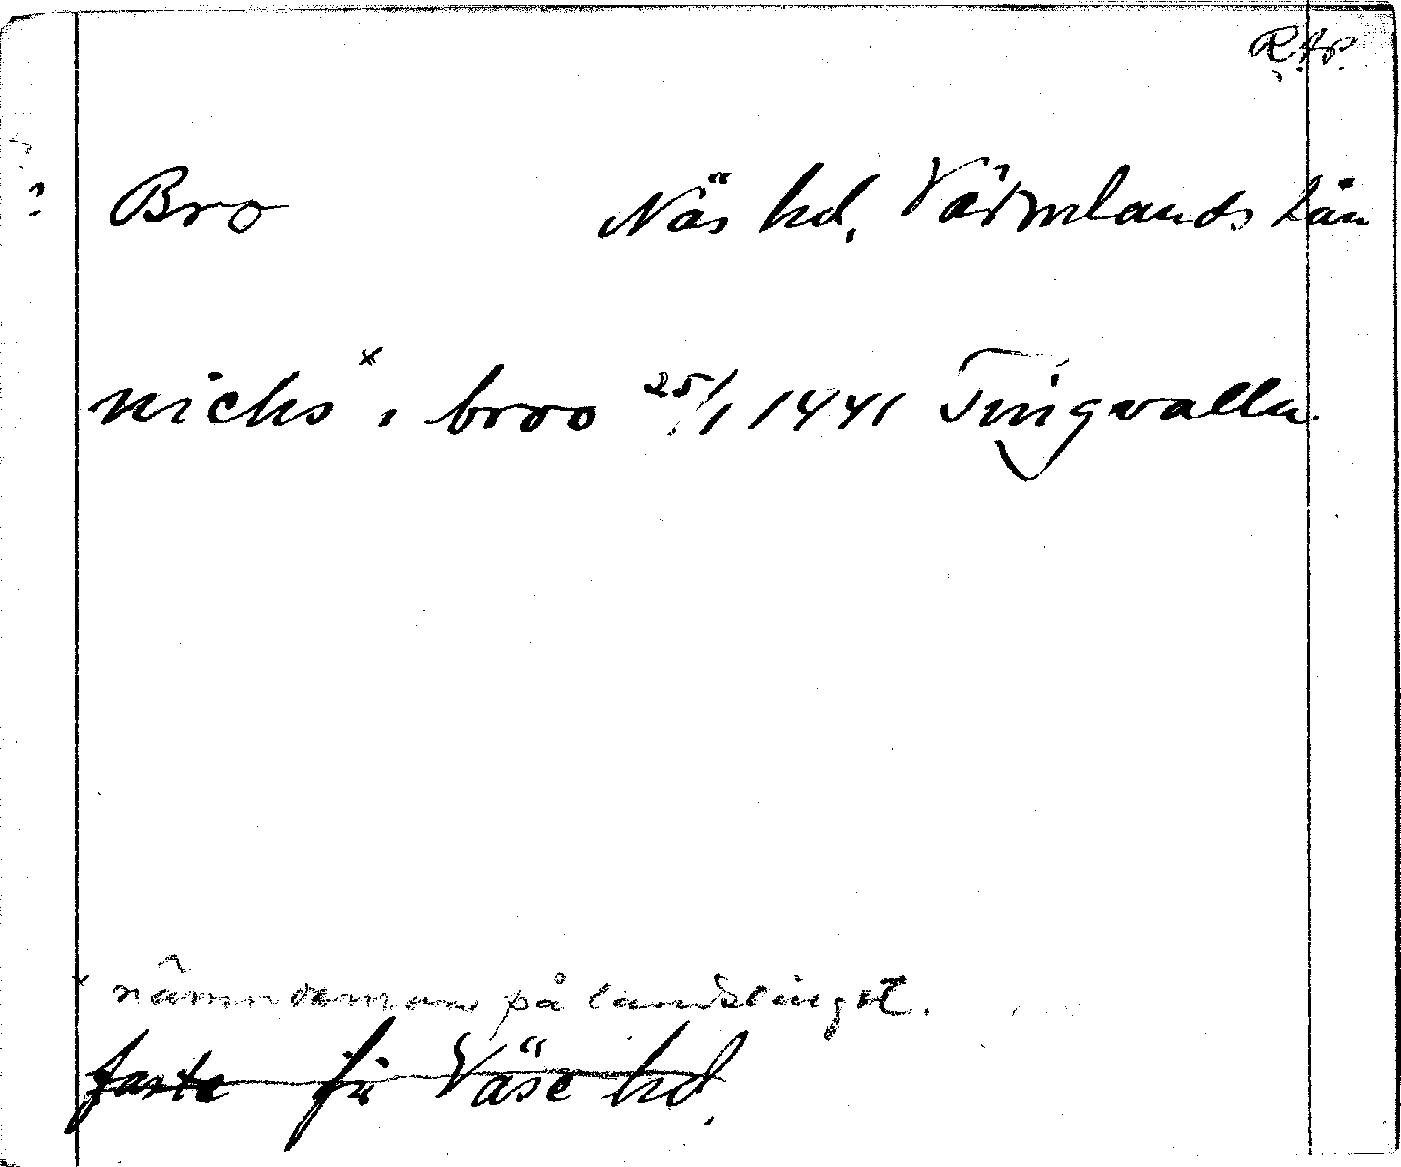 R.A.P.
? Bro Näs hd, Värmlands län
nichs x i broo 25/1 1441 Tingvalla.
x nämndeman på landstinget.
faste för Väse hd.